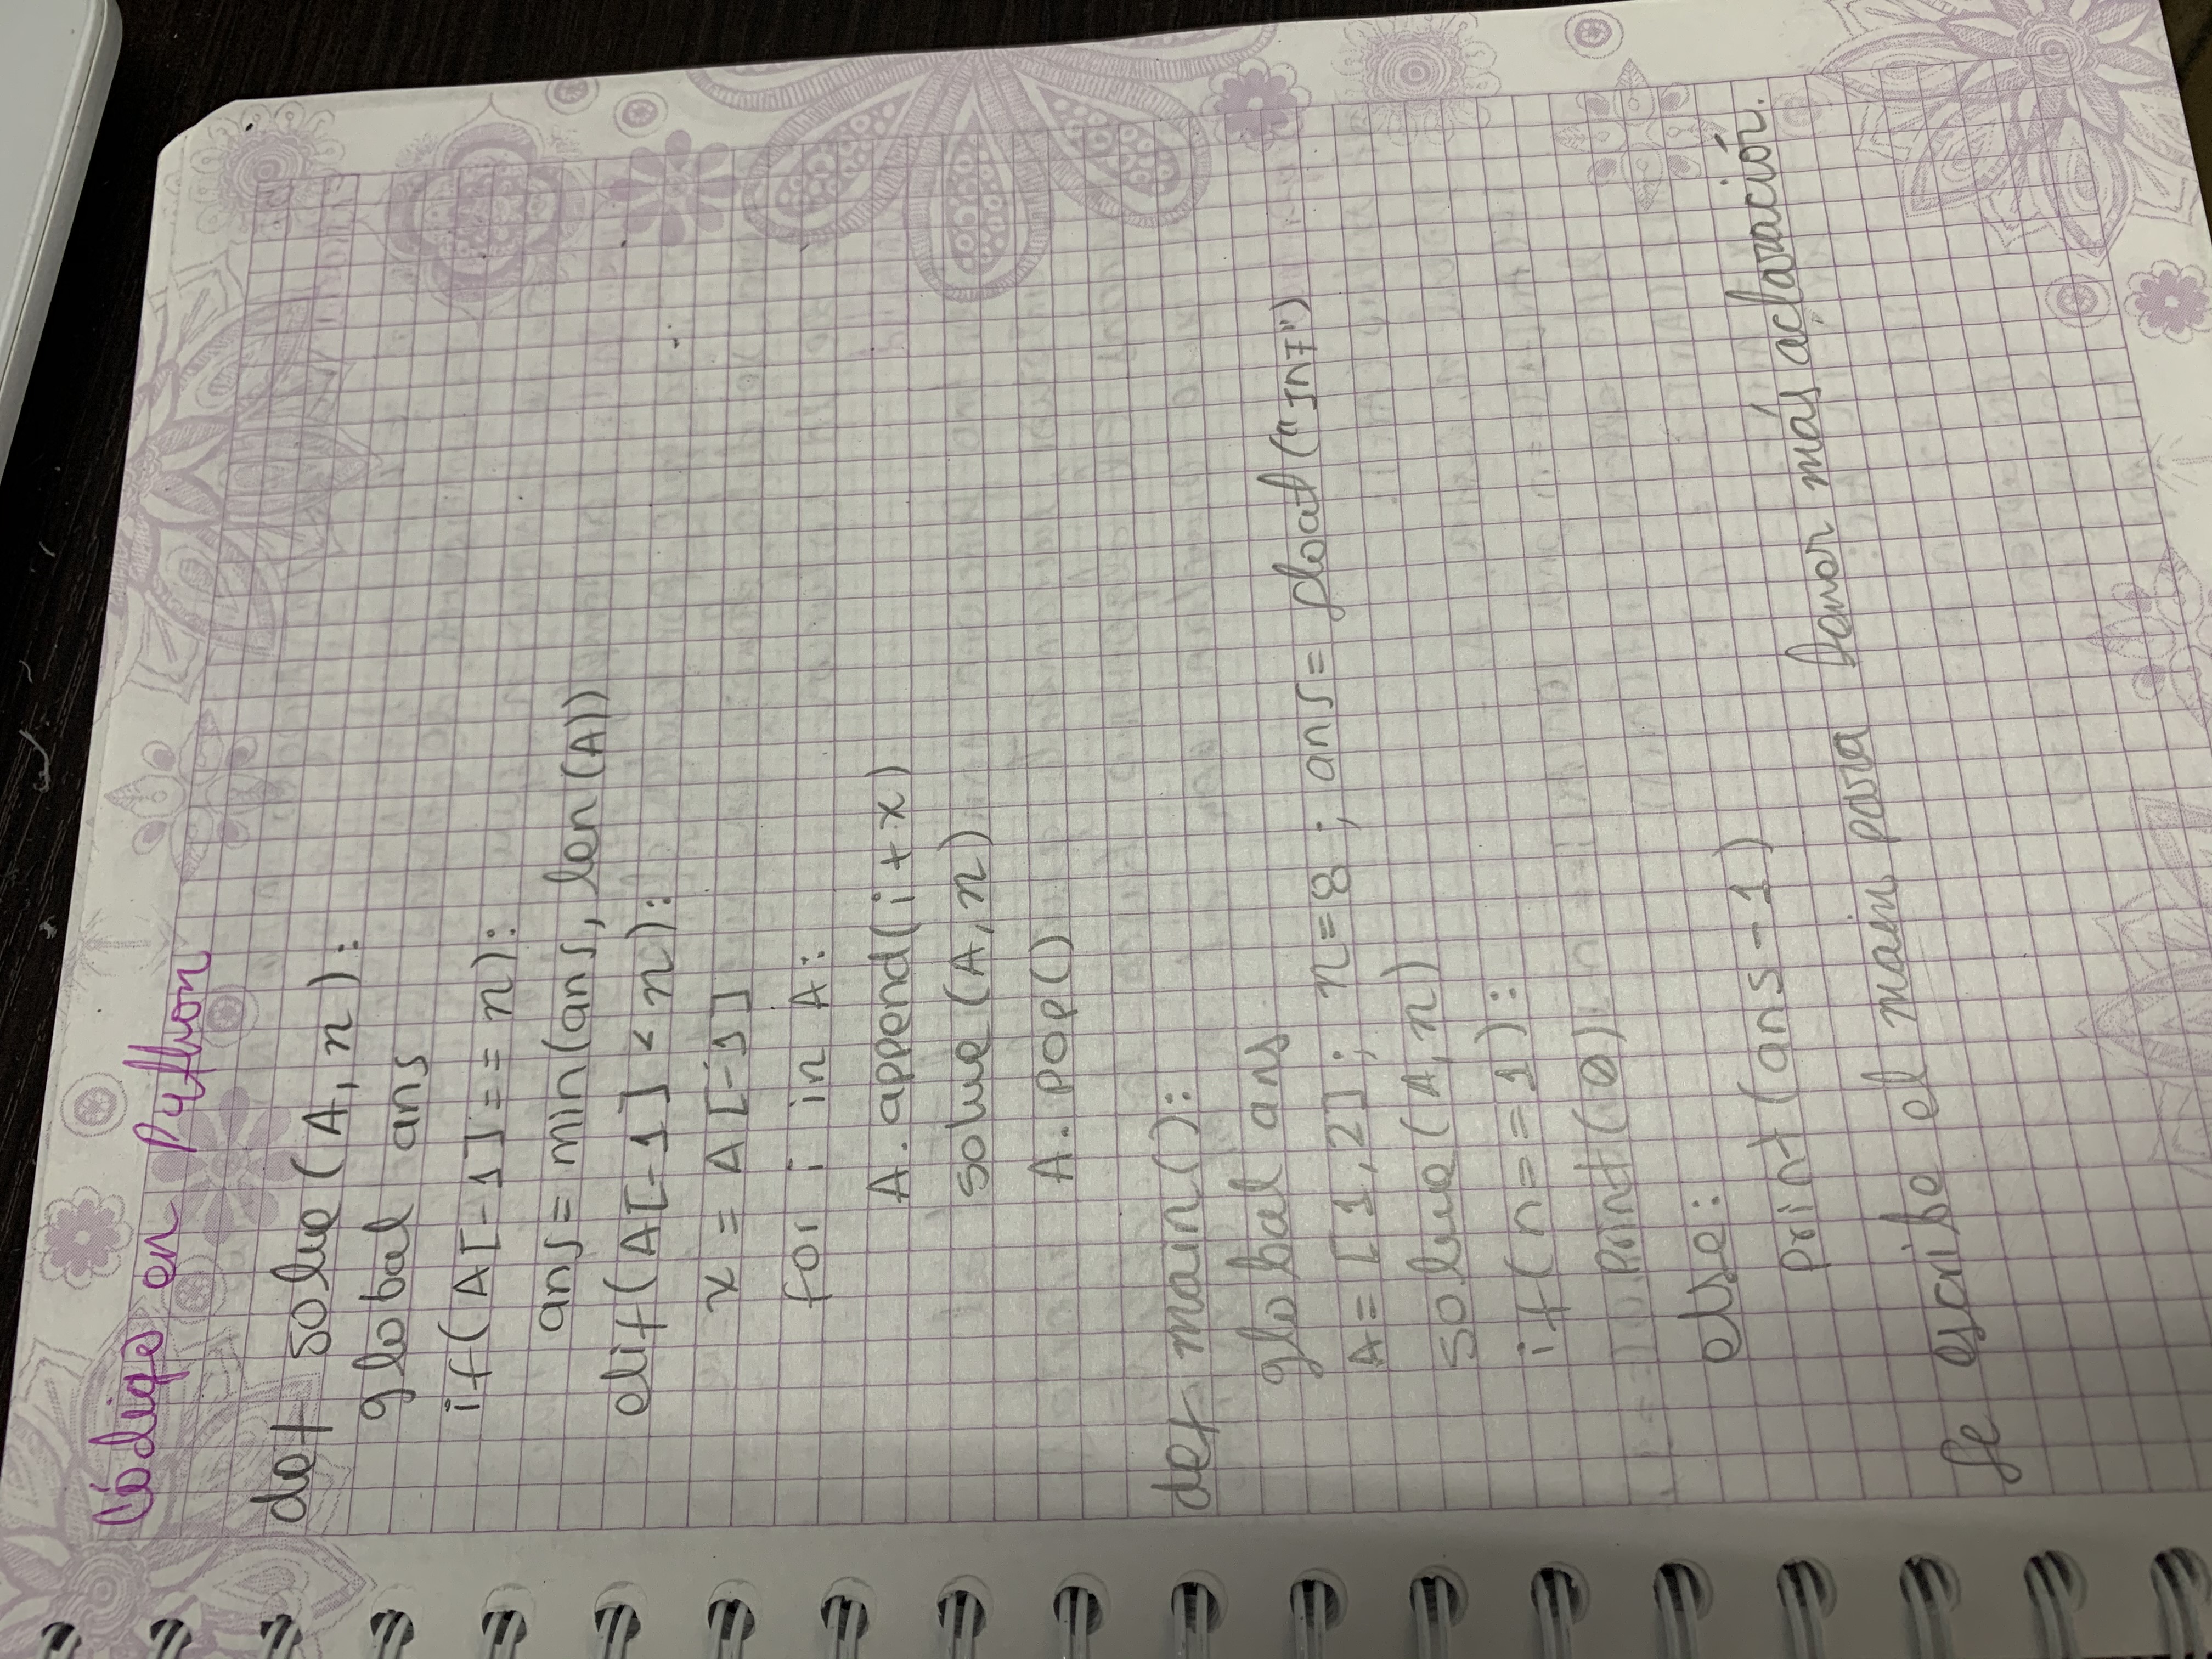 Código en Python
def solve(A, n):
global ans
if(A[-1] == n):
ans = min(ans, len(A))
elif(A[-1] < n):
x = A[-1]
for i in A:
A.append(i + x)
solve(A, n)
A.pop()
def main():
global ans
A = [1, 2]; n=8; ans= float("Inf")
solve(A, n)
if(n==1):
print(0)
else:
print(ans-1)
Se escribe el main para tener más aclaración.